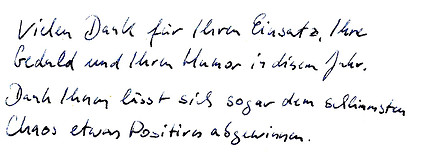 Vielen Dank für Ihren Einsatz, Ihre
Geduld und Ihren Humor in diesem Jahr.
Dank Ihnen lässt sich sogar dem schlimmsten
Chaos etwas Positives abgewinnen.